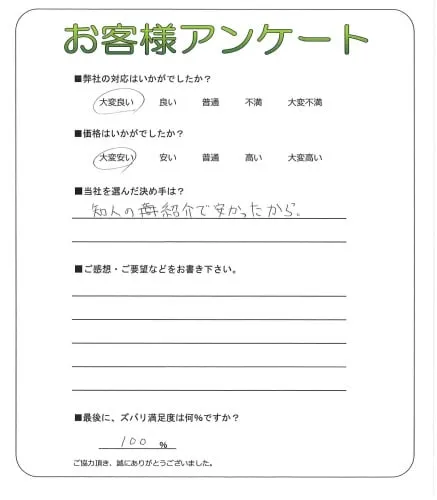 お客様アンケート
■弊社の対応はいかがでしたか?
大変良い 良い 普通 不満 大変不満
■価格はいかがでしたか?
大変安い 安い 普通 高い 大変高い
■当社を選んだ決め手は?
知人の紹介で安かったから。
■ご感想・ご要望などをお書き下さい。
■最後に、ズバリ満足度は何%ですか?
100 %
ご協力頂き、誠にありがとうございました。